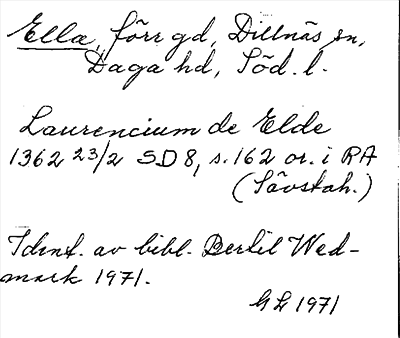 Ella, förr gd, Dillnäs sn,
Daga hd, Söd. l.
Laurencium de Elde
1362 23/2 SD 8, s. 162 or. i RA
(Sävstah.)
Ident. av bibl. Bertil Wed-
mark 1971.
GL 1971